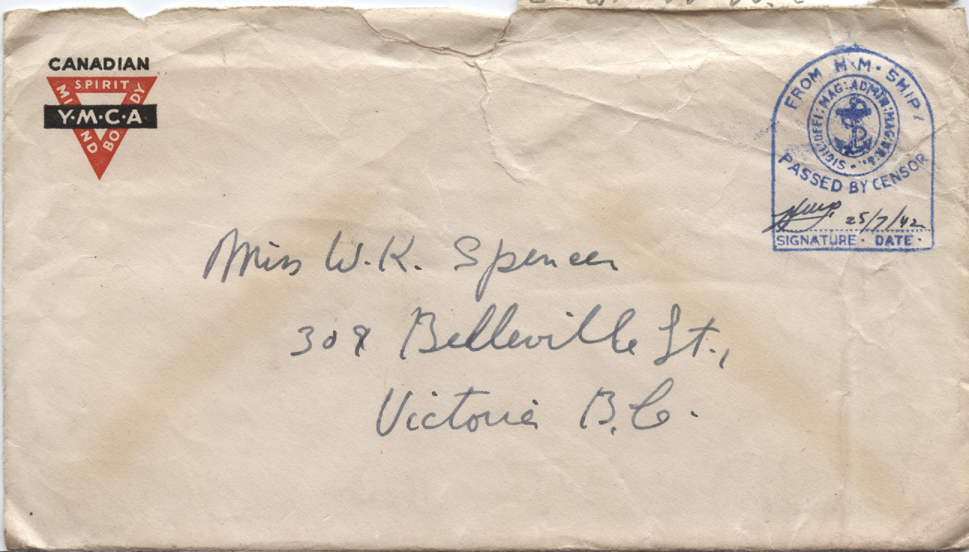 CANADIAN
SPIRIT
MIND
BODY
Y·M·C·A
FROM H·M·SHIP/
SIGIL:OFFI:MAG:ADMIN:MAG
PASSED BY CENSOR
25/7/42
SIGNATURE · DATE ·
Miss W.K. Spencer
308 Belleville St.,
Victoria B.C.